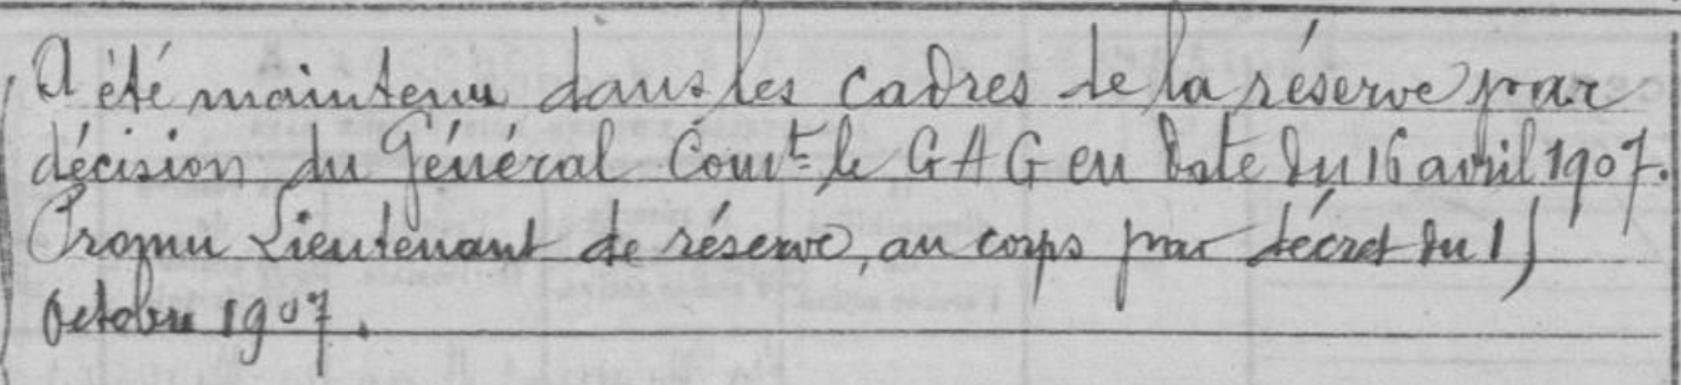 A été maintenu dans les cadres de la réserve par
décision du Général Comt le G A G en date du 16 avril 1907.
Promu Lieutenant de réserve, au corps par décret du 15
octobre 1907.